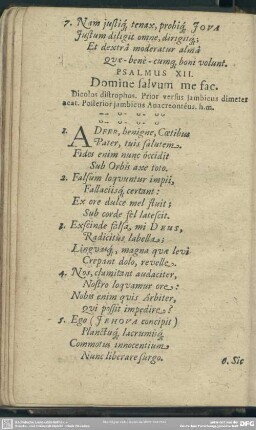 7. Nam justiq́, tenax, probiq́, JOVA
Justum diligit omne, dirigitq́;
Et dextrâ moderatur almâ
Quæ-benè-cumq́, boni volunt.
PSALMUS XII.
Domine salvum me fac.
Dicolos distrophos. Prior versus Jambicus dimeter
acat. Posterior jambicus Anacreonteus. h.m.
1. ADFER, benigne, Cœtibus
Pater, tuis salutem.
Fides enim nunc occidit
Sub Orbis axe toto.
2. Falsum loquuntur impii,
Fallaciisq́, certant:
Ex ore dulce mel fluit;
Sub corde fel latescit.
3. Exscinde falsa, mi DEUS,
Radicitus labella;
Linguasq́, magna quæ levi
Crepant dolo, revelle.
4. Nos, clamitant audaciter,
Nostro loquamur ore:
Nobis enim quis Arbiter,
Qui possit impedire?
5. Ego (JEHOVA concipit)
Planctuq́, lacrumisq́,
Commotus innocentium
Nunc liberare surgo.
6. Sic